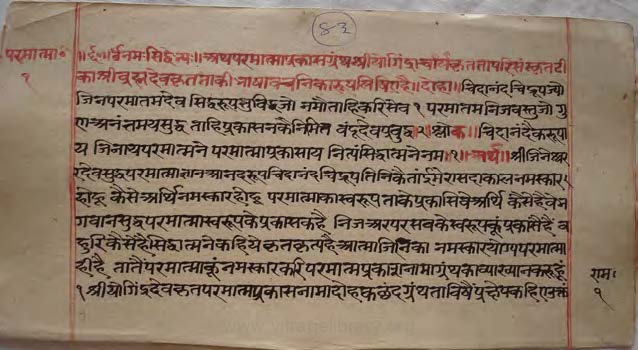 ८३
परमात्मा॰
१
॥ॐनमःसिद्धेभ्यः॥अथपरमात्माप्रकासग्रंथश्रीयोगिंद्राचार्यकृततापरिसंस्कृतटी
काश्रीब्रह्मदेवकृतताकीभाषावचनिकारूपलिषिएहै॥दोहा॥चिदानंदचिद्रूपजो
जिनपरमातमदेव सिद्धरूपसुविद्धजो नमौताहिकरिसेव १ परमातमनिजवस्तुजो गु
णअनंतमयसुद्ध ताहिप्रकासनकैनिमित वंदूदेवप्रबुद्ध२॥श्लोक॥चिदानंदैकरूपा
य जिनायपरमात्मने परमात्माप्रकासाय नित्यंसिद्धात्मनेनमः१॥अर्थ॥श्रीजिनेश्वर
रदेवसुद्धपरमात्माज्ञानआनंदरूपचिदानंदचिद्रूपतिनिकैतांईमेरासदाकालनमस्कार
होहू कैसेअर्थिनमस्कारहोहू परमात्माकास्वरूपताकेप्रकासिवेअर्थि कैसेहैवेभ
गवानसुद्धपरमात्मास्वरूपकेप्रकासकहै निजअरपरसबकेस्वरूपकूंप्रकासैहैं ब
हुरिकैसेहैसिद्धात्मनेकहियेकृतकृत्यहैआत्माजिनिका नमस्कारयोग्यपरमात्मा
हीहै तातैंपरमात्माकूंनमस्कारकरिपरमात्मप्रकाशनामाग्रंथकाव्याख्यानकरूंहूं
१ श्रीयोगिंद्रदेवकृतपरमात्मप्रकासनामादोहकछंदग्रंथताविषैं
रामः
१
www.vitragelibrary.org